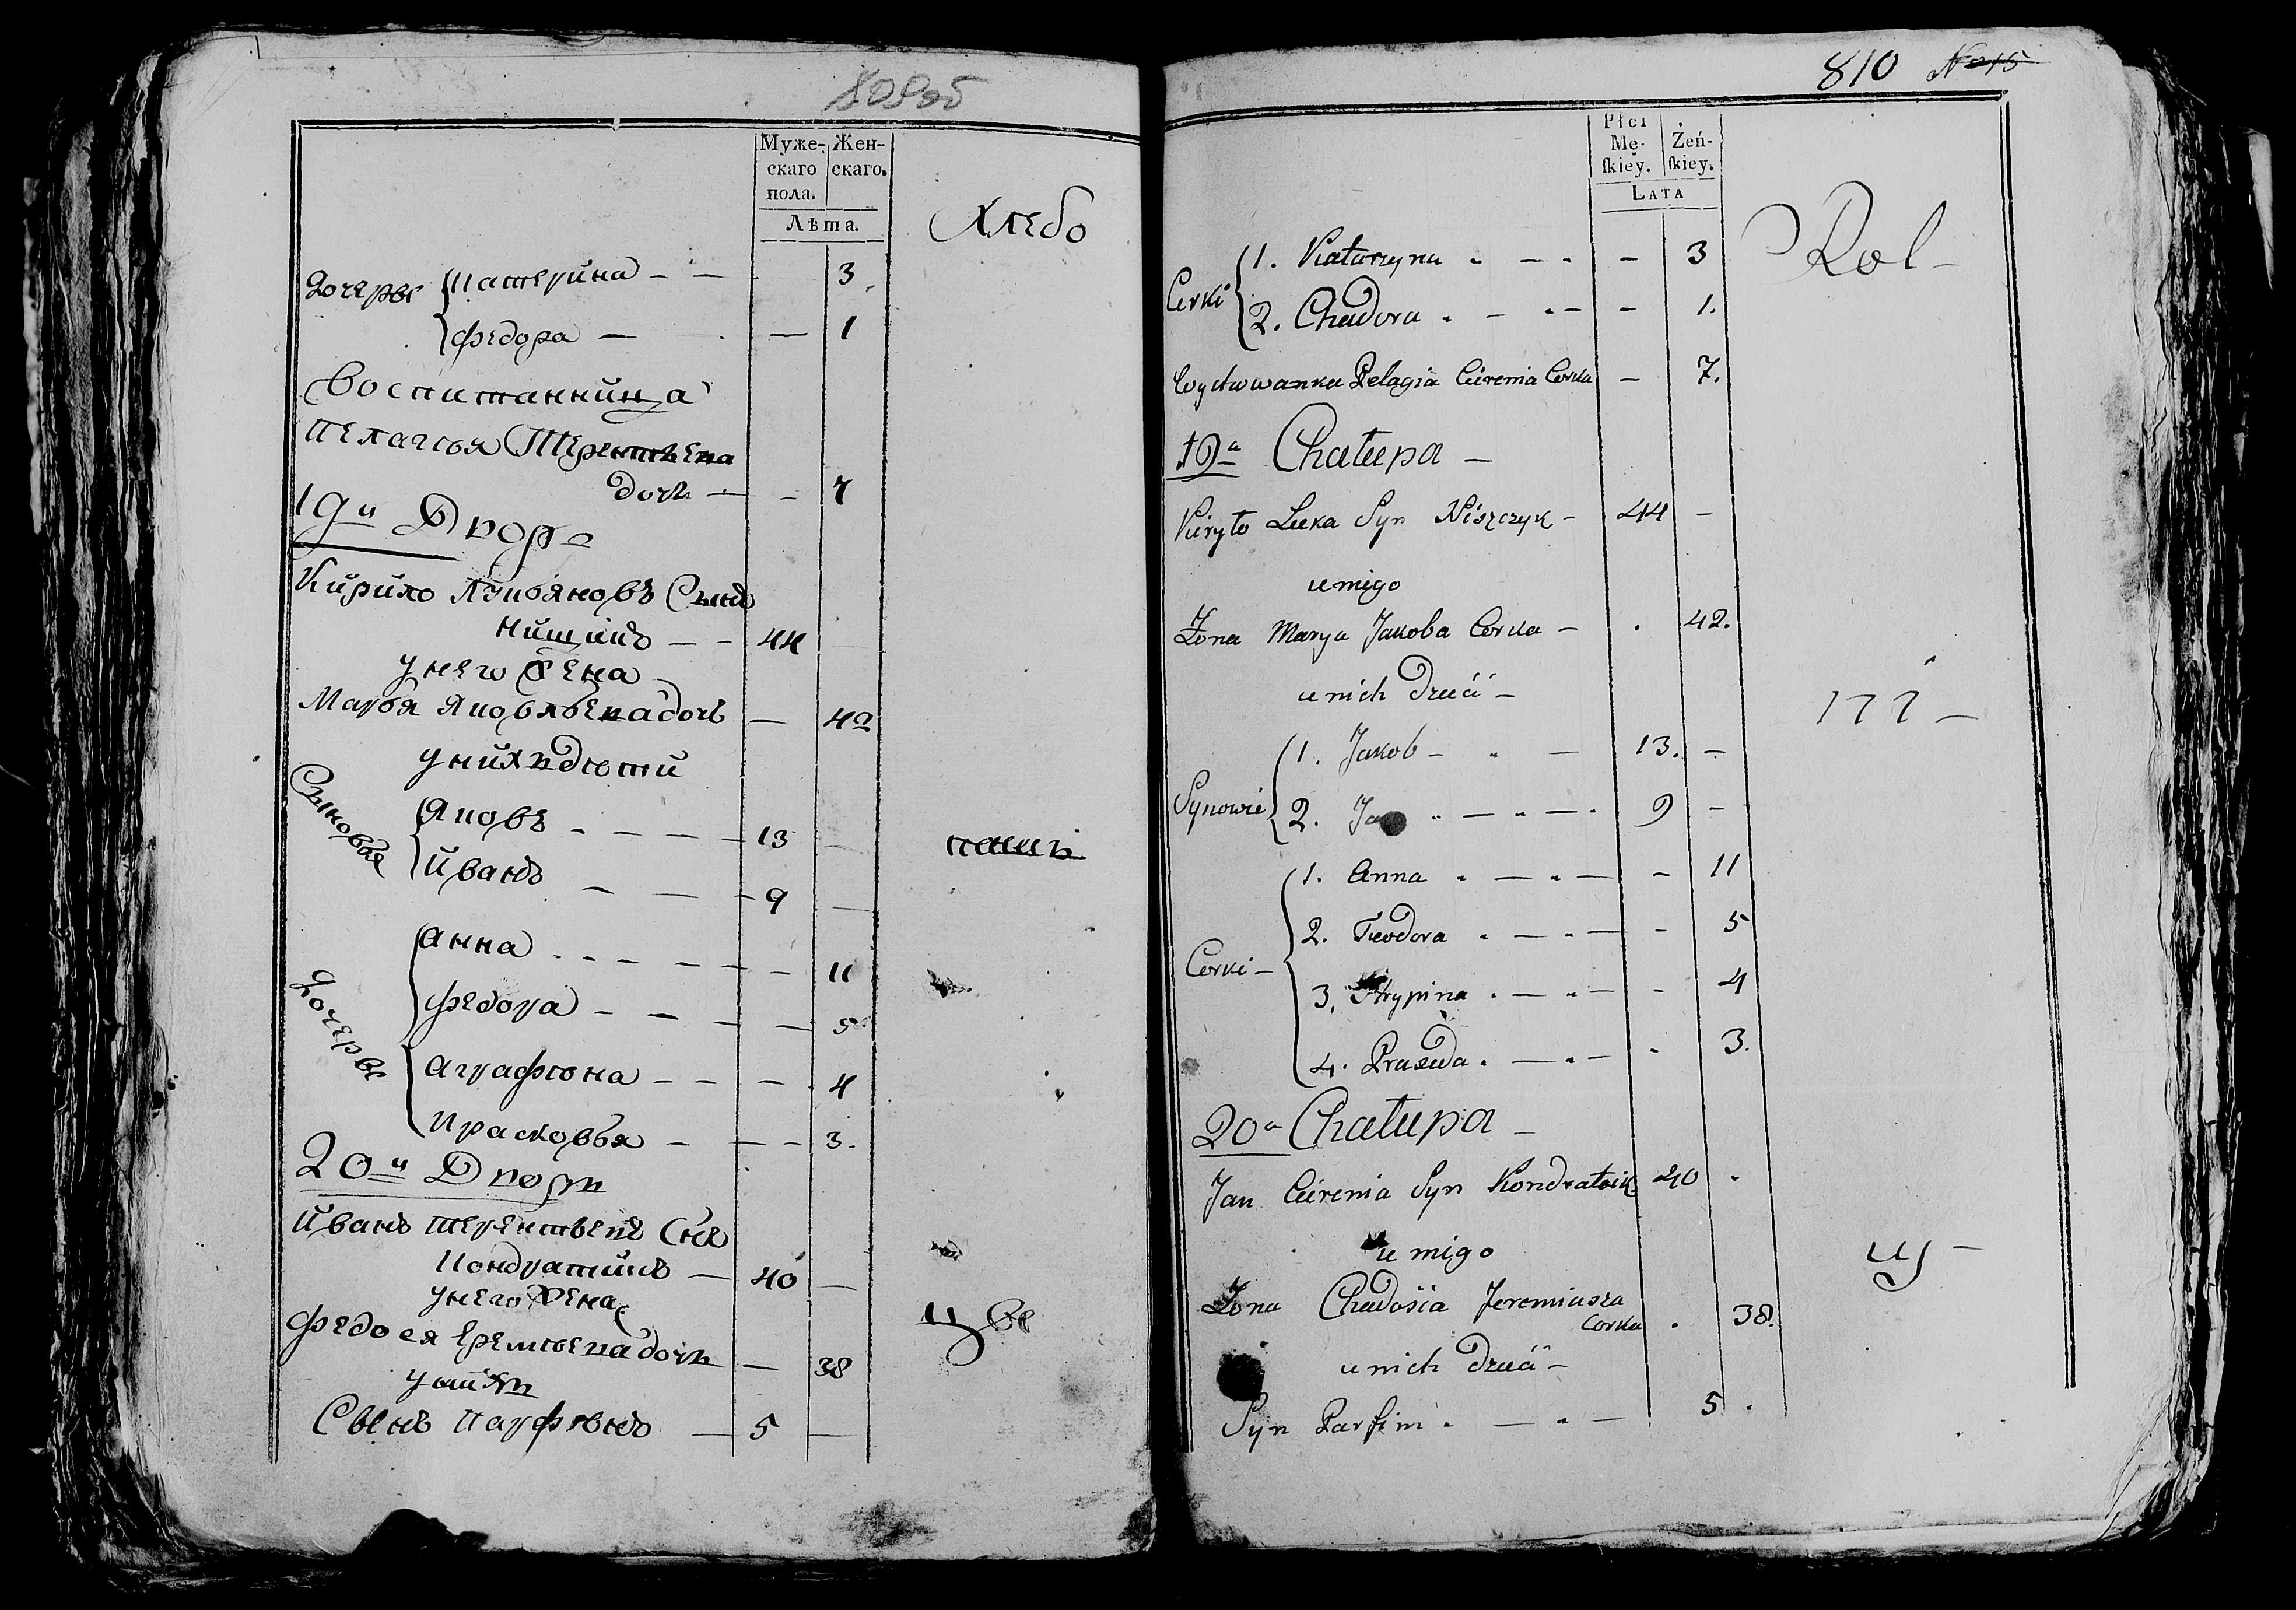 809об
Муже-
скаго
пола.
Жен-
скаго.
Лѣта.
Хлебо
Дочерье
Катерина — — 3
Федора — — 1
Воспитанница
Пелагѣя Терентьева
дочь — - 7
19й Дворъ
Кирило Лукьяновъ Сынъ
Нищикъ — - 44
у него Жена
Марья Яковлѣва дочь — 42
у нихъ дѣти
Сыновья
Яковъ - — — — 13 —
Иванъ — — — 9 —
паш
Дочерье
Анна - - - — — - - 11
Федора - — — — — 5
Аграфѣна — - — 4
Прасковья — — - 3.
20й Дворъ
Иванъ Терентьевъ Снъ
Кондратикъ — 40 —
у него Жена
Федося Еремѣева дочь — 38
у нихъ
Сынъ Парфѣнъ — 5 —
цы
810 No 15
Płci
Mę-
ſkiey.
Żeń-
ſkiey.
LATA
Rol-
Corki
1. Katarzyna - — - - 3
2. Chwedora - — - - - 1.
Wychowanka Pelagia Cierenia Corka — 7.
19a Chałupa —
Kiryło Łuka Syn Niszczyk - 44 —
u niego
Żona Marya Jakoba Corka — . 42.
u nich dzieci —
Synowie
1. Jakob - - — 13. —
2. Ja - — - — - 9 —
Corki —
1. Anna - — - — - 11
2. Teodora - — - — - 5
3. Hrypina - — - — - 4
4. Praxeda - — - — - 3.
20a Chałupa —
Jan Cierenia Syn Kondratcik 40 -
u niego
Żona Chwedosia Jeremiasza
Corka . 38.
u nich dzieci —
Syn Parfim - — - — 5 .